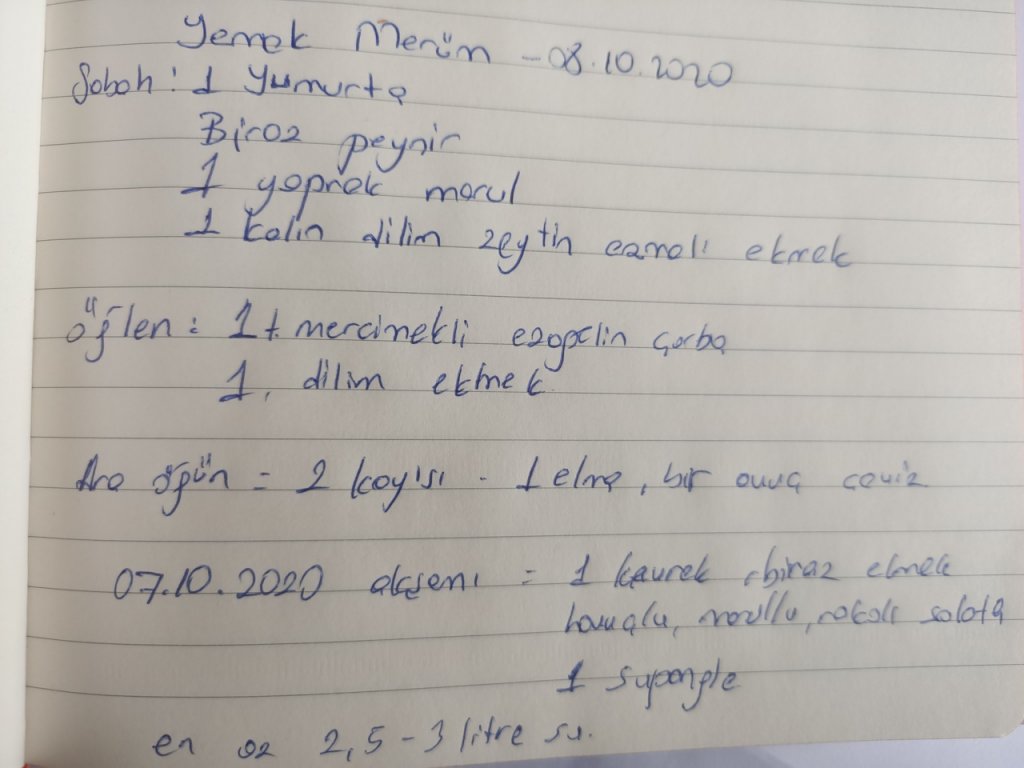 Yemek Menüm - 08.10.2020
Sabah : 1 yumurta
Biraz peynir
1 yaprak marul
1 kalın dilim zeytin ezmeli ekmek
Öğlen : 1 t. mercimekli ezogelin çorba
1. dilim ekmek
Ara öğün = 2 kayısı - 1 elma, bir avuç ceviz
07.10.2020 akşamı = 1 , biraz ekmek
havuçlu, marullu, rokalı salata
1 supangle
en az 2,5 - 3 litre su.